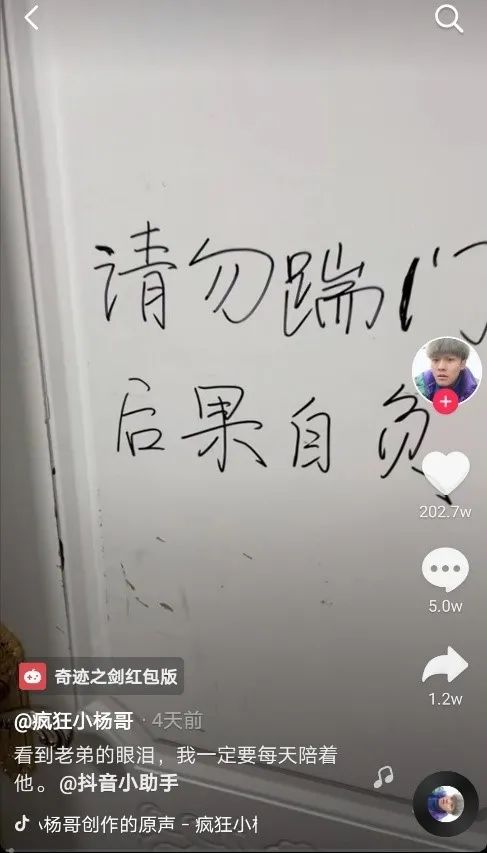 请勿踹门
后果自负
202.7w
5.0w
1.2w
奇迹之剑红包版
@疯狂小杨哥 · 4天前
看到老弟的眼泪，我一定要每天陪着
他。@抖音小助手
杨哥创作的原声 - 疯狂小杨